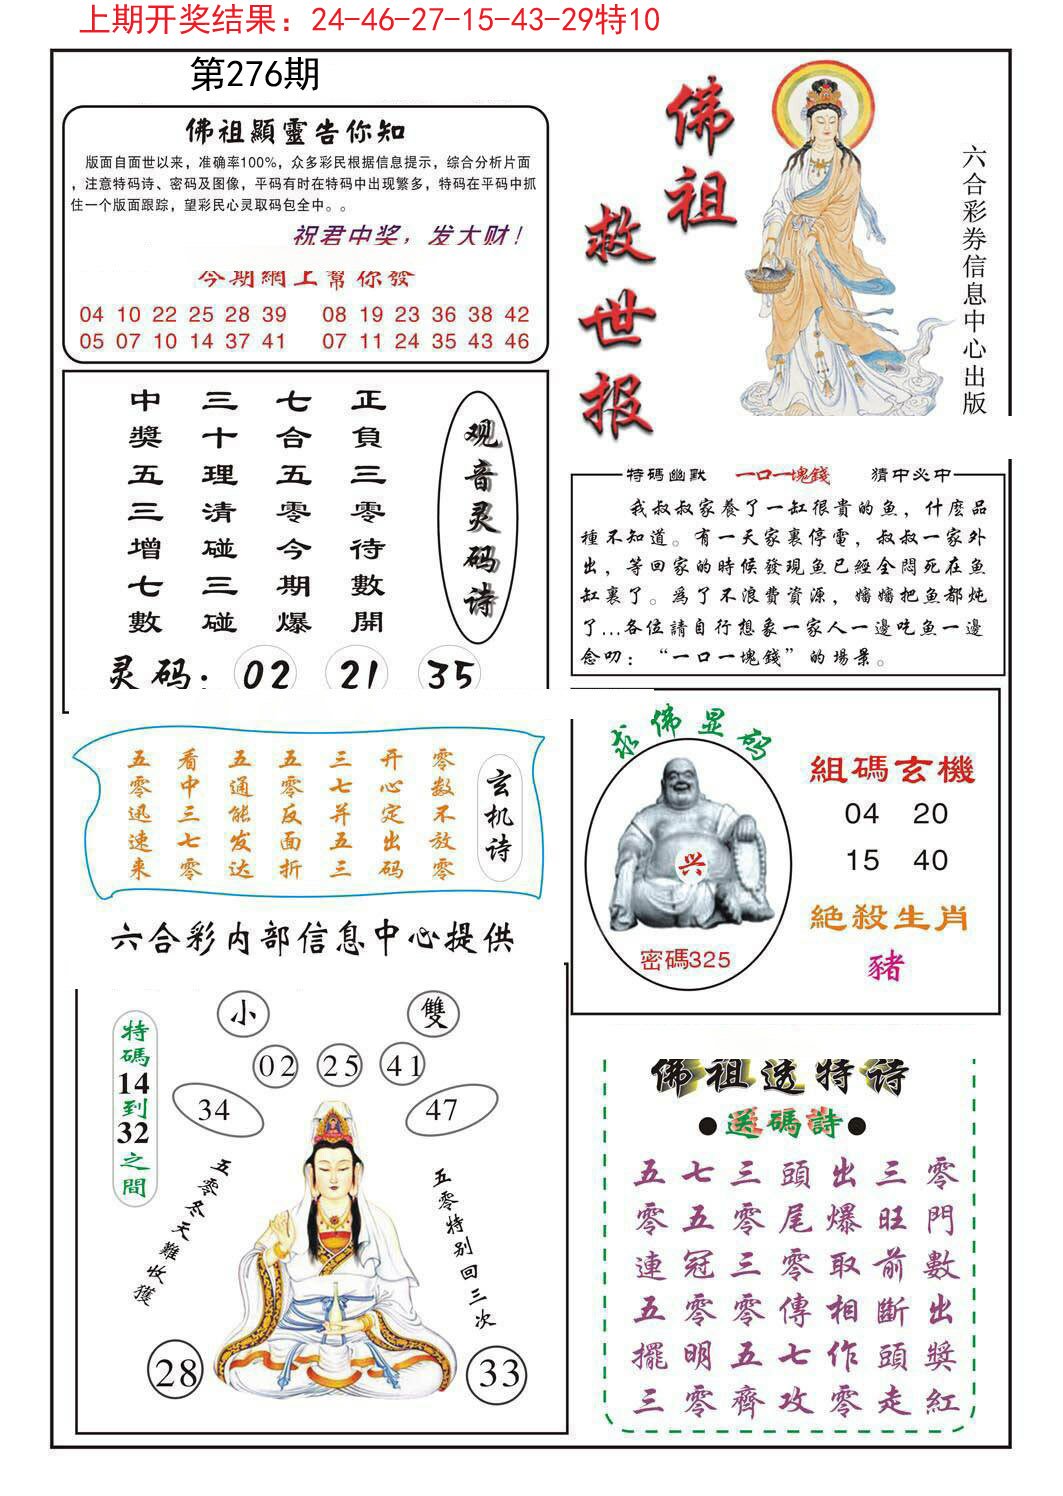 上期开奖结果：24-46-27-15-43-29特10
第276期
佛祖顯靈告你知
版面自面世以来，准确率100%，众多彩民根据信息提示，综合分析片面
，注意特码诗、密码及图像，平码有时在特码中出现繁多，特码在平码中抓
住一个版面跟踪，望彩民心灵取码包全中。。
祝君中奖，发大财！
今期網上幫你發
04 10 22 25 28 39 08 19 23 36 38 42
05 07 10 14 37 41 07 11 24 35 43 46
佛祖
救世报
六合彩券信息中心出版
观音灵码诗
正負三零待數開
七合五零今期爆
三十理清碰三碰
中獎五三增七數
灵码：02 21 35
特碼幽默 一口一塊錢 猜中必中
我叔叔家養了一缸很貴的鱼，什麽品
種不知道。有一天家裏停電，叔叔一家外
出，等回家的時候發現鱼已經全悶死在鱼
缸裏了。爲了不浪費資源，嬸嬸把鱼都炖
了...各位請自行想象一家人一邊吃鱼一邊
念叨：“一口一塊錢”的場景。
玄机诗
零数不放零
开心定出码
三七并五三
五零反面折
五通能发达
看中三七零
五零迅速来
六合彩内部信息中心提供
求佛显码
兴
密碼325
組碼玄機
04 20
15 40
絕殺生肖
豬
小 雙
02 25 41
34 47
特碼14到32之間
五零冬天難收獲
五零特别回三次
28 33
佛祖透特诗
●送碼詩●
零門數出獎紅
三旺前斷頭走
出爆取相作零
頭尾零傳七攻
三零三零五齊
七五冠零明零
五零連五擺三